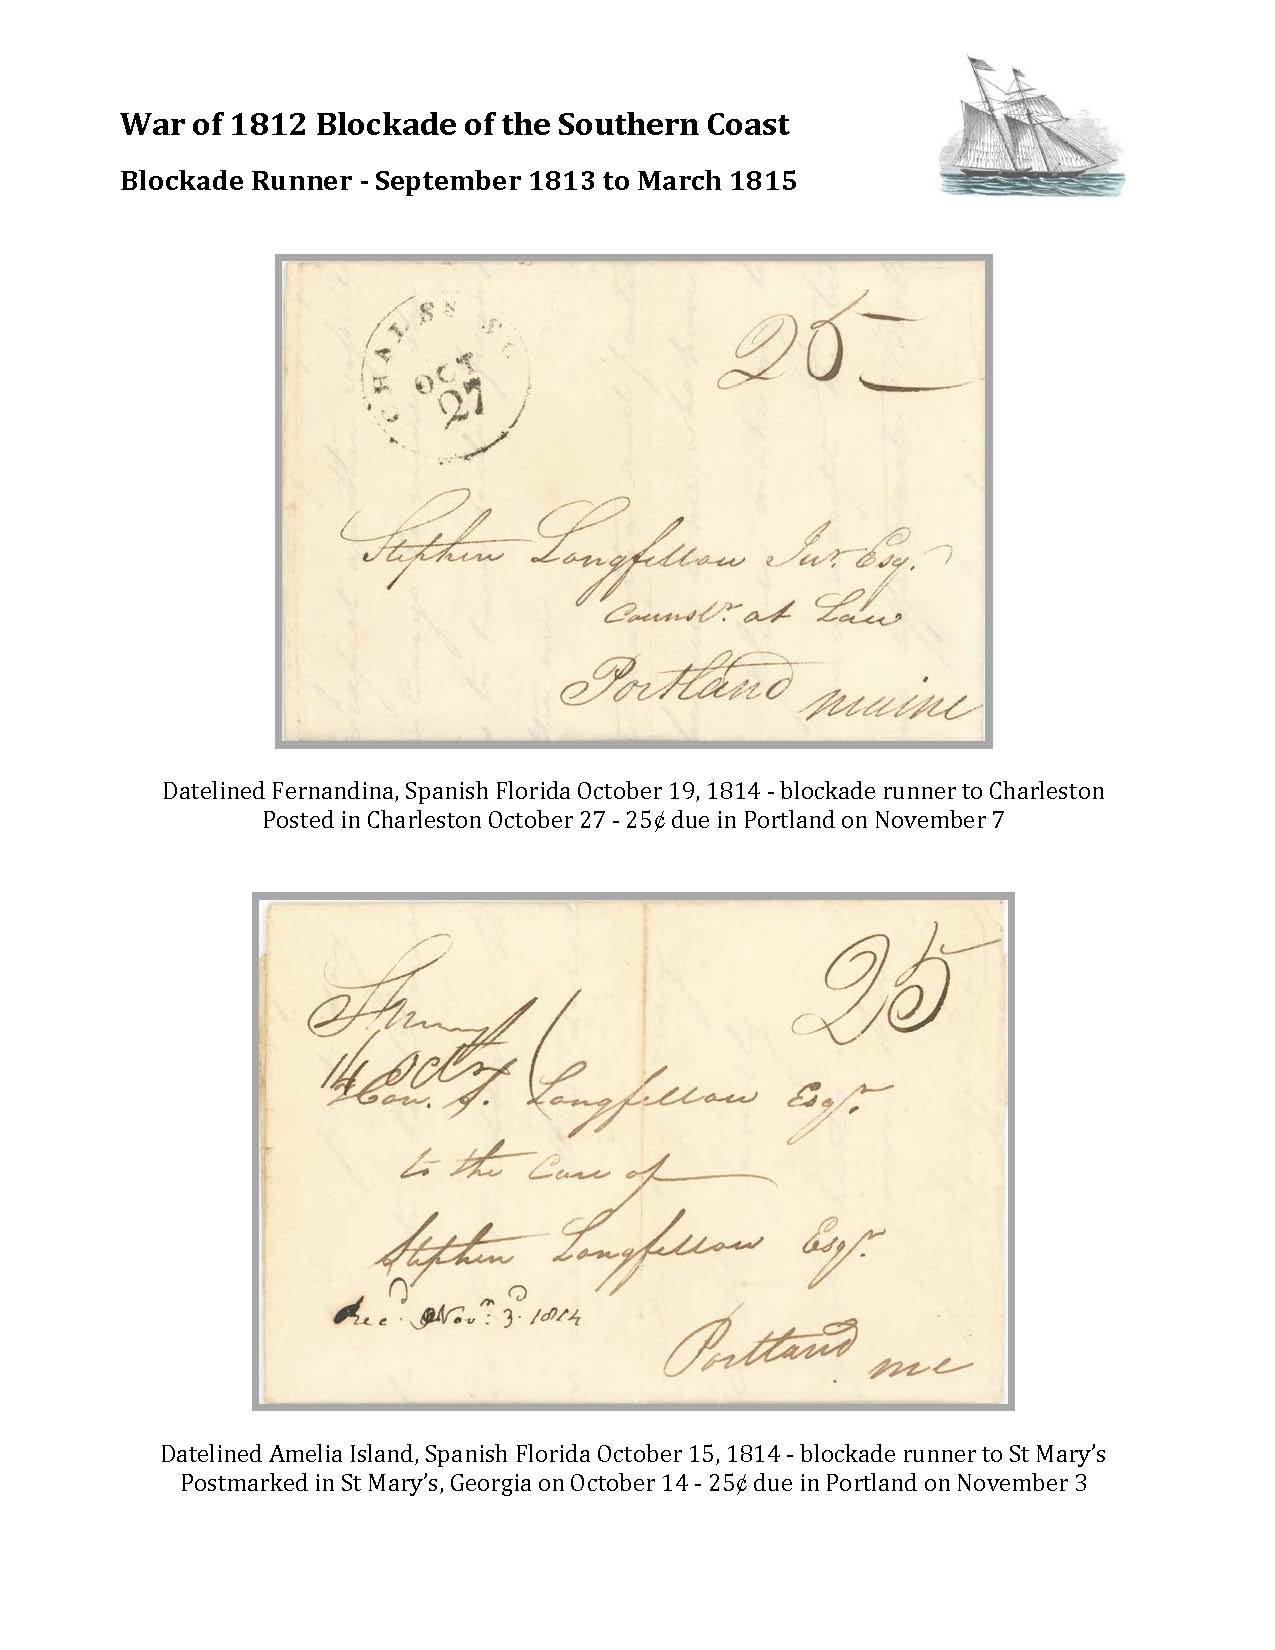 War of 1812 Blockade of the Southern Coast
Blockade Runner - September 1813 to March 1815
CHALSN S C
OCT
27
25
Stephen Longfellow Junr. Esq.
Counslr. at Law
Portland maine
Datelined Fernandina, Spanish Florida October 19, 1814 - blockade runner to Charleston
Posted in Charleston October 27 - 25¢ due in Portland on November 7
25
14 Octr
Hon. S. Longfellow Esqr.
to the Care of
Stephen Longfellow Esqr.
Recd. Novm. 3d. 1814
Portland me
Datelined Amelia Island, Spanish Florida October 15, 1814 - blockade runner to St Mary’s
Postmarked in St Mary’s, Georgia on October 14 - 25¢ due in Portland on November 3